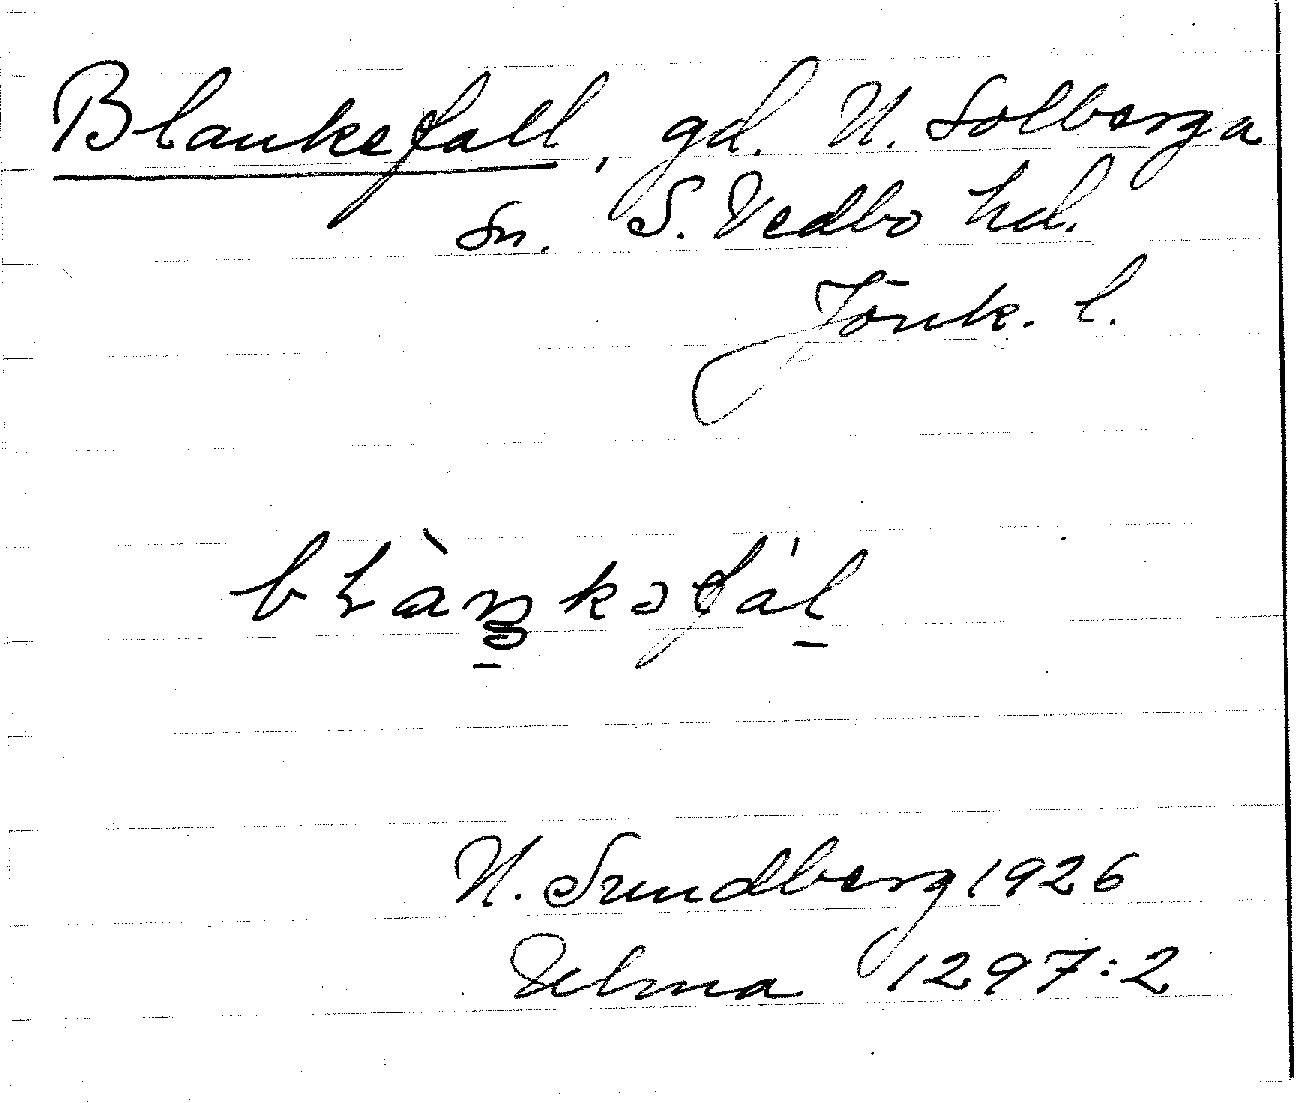 Blankefall, gd. N. Solberga
sn. S. Vedbo hd.
Jönk. l.
N. Sundberg 1926
Ulma 1297:2